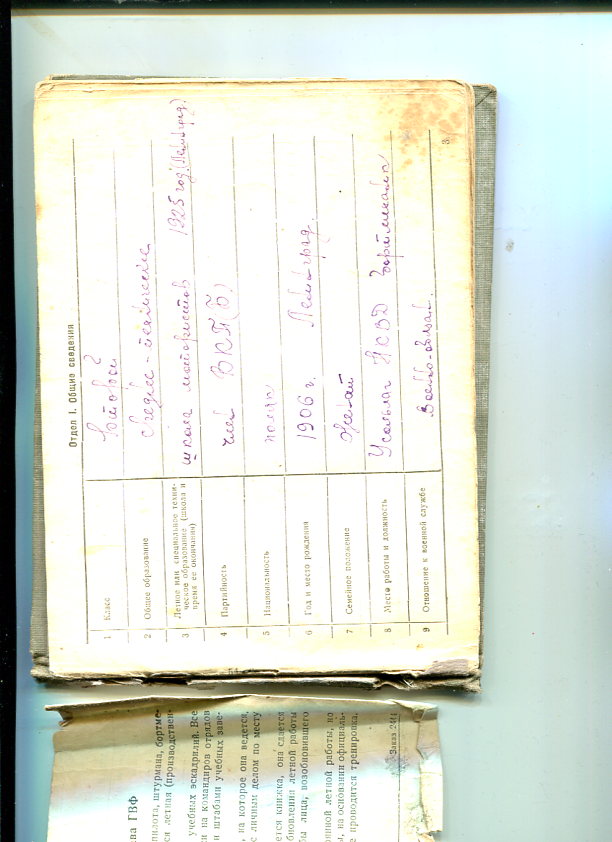 Отдел I. Общие сведения
1 Класс Бытовой
2 Общее образование Средне-техническое
3 Летное или специальное техническое образование (школа и время ее окончания) школа мотористов 1925 год (Ленинград)
4 Партийность член ВКП(б)
5 Национальность поляк
6 Год и место рождения 1906 г. Ленинград.
7 Семейное положение женат
8 Место работы и должность Усольлаг НКВД бортмеханик
9 Отношение к военной службе Военно-обязан.
3
ва ГВФ
пилота, штурмана, бортме-
ся летная (производствен-
учебных эскадрилий. Все
ки на командиров отрядов
и штабами учебных заве-
, на которое она ведется,
с личным делом по месту
ется книжка, она сдается
бновления летной работы
бы лица, возобновившего
оянной летной работы, но
ы, на основании официаль-
е проводится тренировка.
Заказ 2414